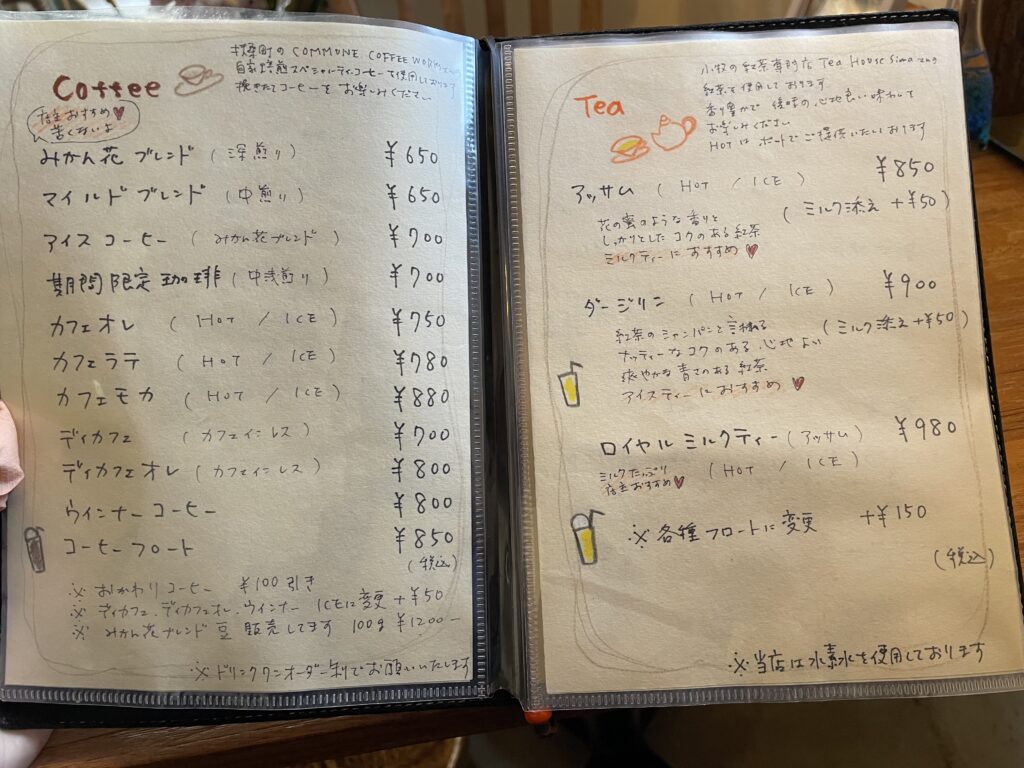 Coffee
扶桑町の COMMUNE COFFEE WORKSさんの
自家焙煎スペシャルティコーヒーを使用しております
挽きたてコーヒーを お楽しみください
店主おすすめ♥
苦くないよ
みかん花 ブレンド (深煎り) ¥650
マイルド ブレンド (中煎り) ¥650
アイスコーヒー (みかん花ブレンド) ¥700
期間限定 珈琲 (中浅煎り) ¥700
カフェオレ (HOT / ICE) ¥750
カフェラテ (HOT / ICE) ¥780
カフェモカ (HOT / ICE) ¥880
ディカフェ (カフェインレス) ¥700
ディカフェオレ (カフェインレス) ¥800
ウインナーコーヒー ¥800
コーヒーフロート ¥850
(税込)
※ おかわりコーヒー ¥100引き
※ ディカフェ、ディカフェオレ、ウインナー ICEに変更 +¥50
※ みかん花ブレンド 豆 販売してます 100g ¥1200-
※ドリンクワンオーダー制でお願いいたします
Tea
小牧の紅茶専門店 Tea House Simaさんの
紅茶を使用しております
香り豊かで 後味の心地良い味わいを
お楽しみください
HOTは ポットでご提供いたしております
アッサム (HOT / ICE) ¥850
(ミルク添え +¥50)
花の蜜のような香りと
しっかりとしたコクのある紅茶
ミルクティーにおすすめ♥
ダージリン (HOT / ICE) ¥900
(ミルク添え+¥50)
紅茶のシャンパンと言われる
ナッティーなコクのある 心地よい
爽やかな青さのある紅茶
アイスティーにおすすめ♥
ロイヤルミルクティー (アッサム) ¥980
(HOT / ICE)
ミルクたっぷり
店主おすすめ♥
※各種フロートに変更 +¥150
(税込)
※当店は水素水を使用しております